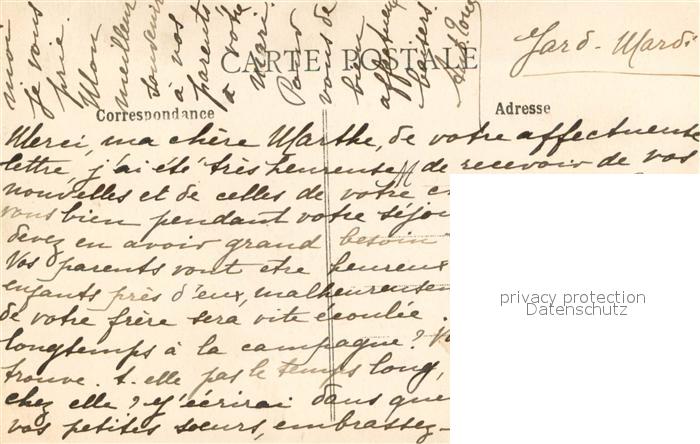 CARTE POSTALE
Jard - Mardi
Correspondance
Adresse
Merci, ma chère Marthe, de votre affectueuse
lettre, j'ai été très heureuse de recevoir de vos
nouvelles et de celles de votre
vous bien pendant votre séjou
devez en avoir grand besoin
Vos parents vont être heureux
enfants près d'eux, malheureusem
de votre frère sera vite écoulée.
longtemps à la campagne? Vo
trouve-t-elle pas le temps long,
chez elle? J'écrirai dans que
vos petites soeurs, embrassez-
moi
je vous
prie.
Mon
meilleur
souvenir
à vos
parents
à votre
mari.
Pour
vous de
bien
affectueux
baisers.
privacy protection
Datenschutz